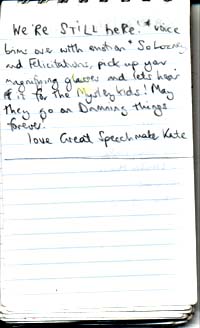 We're STILL here! *voice
brims over with emotion* So Lozenge
and Felicitations, pick up your
magnifying glasses and let's hear
it is for the Mystery kids! May
they go on Dramning things
forever!
love Great Speechmate Kate